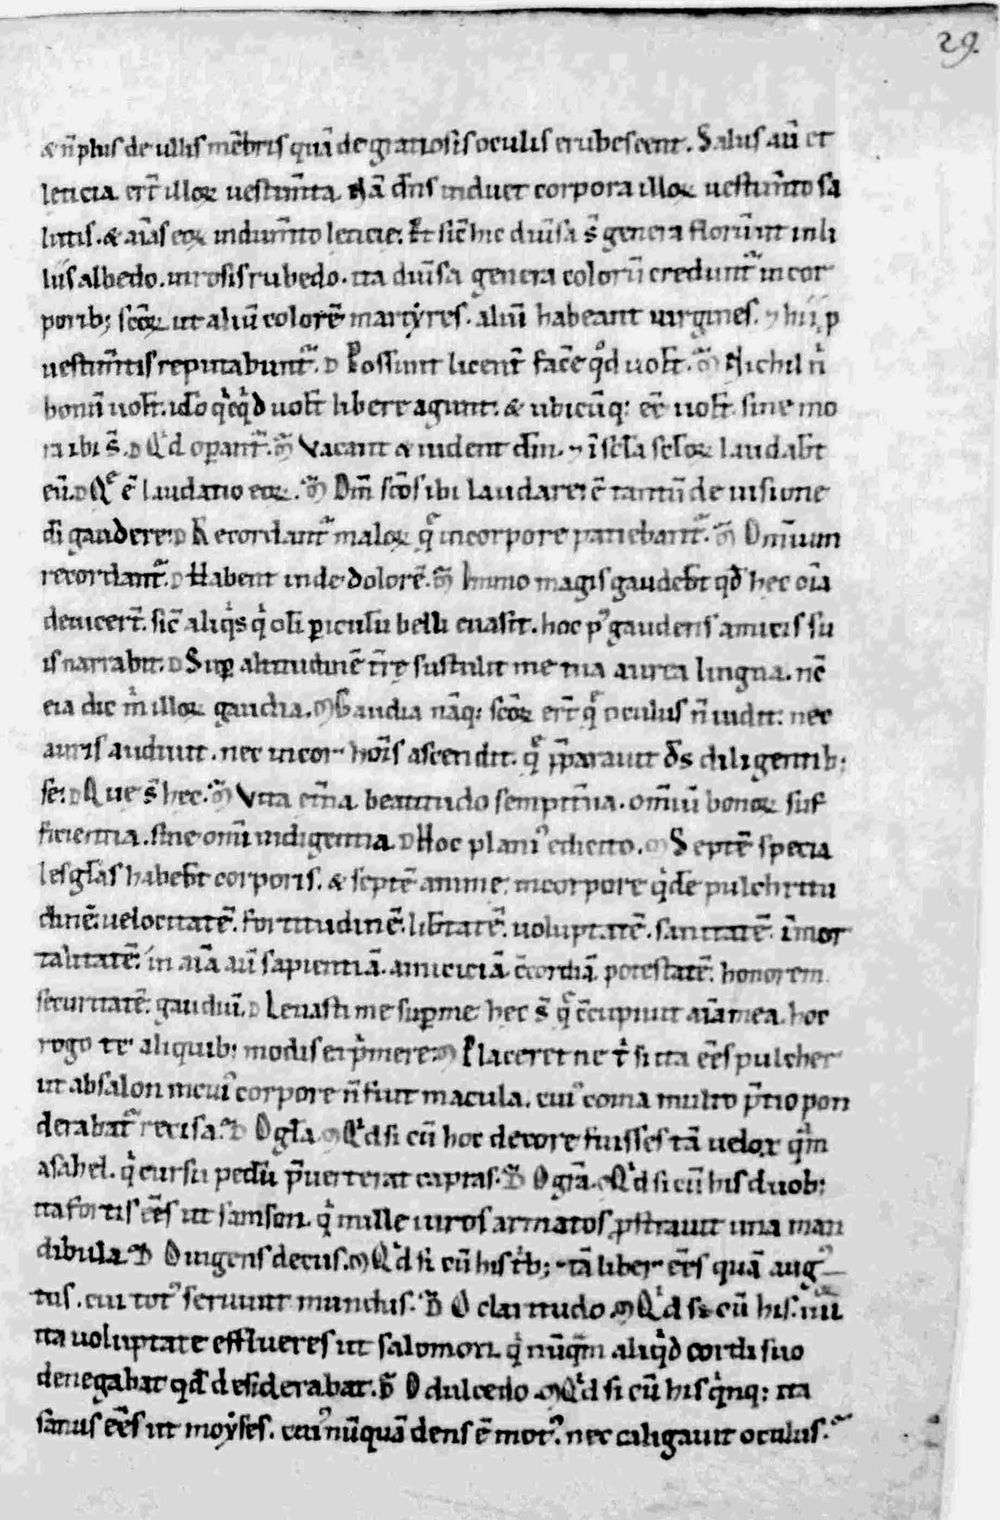 29.
& n̄ plus de ullis mēbris quā de gratiosis oculis erubescent. Salus aū et
leticia ert̄ illoꝝ uestim̄ta. Nā dn̄s induet corpora illoꝝ uestim̄to sa
lutis. & aīas eoꝝ indum̄to leticie. Et sic̄ hic diūsa s̄ genera floꝝ ut in li
liis albedo. in rosis rubedo. ita diūsa genera colorū credunt᷑ in cor
porib; sc̄oꝝ ut aliū colorē martyres. aliū habeant uirgines. ⁊ hii p
uestim̄tis reputabunt᷑. D Possunt licent̄ facē qd̄ uolt̄. M̄ Nichil n̄
bonū uolt̄. idō qͥcqͥd uolt̄ libere agunt. & ubicūq; eē uolt̄ sine mo
ra ibi s̄. D Qͥd operant᷑. M̄ Vacant & uident dm̄. ⁊ ī scl̄a scl̄oꝝ laudabt̄
eū. D Qͤ ē laudatio eoꝝ. M̄ Dm̄ sc̄os ibi laudare: ē tantū de uisione
di gaudere. D Recordant᷑ maloꝝ q̄ in corpore patiebant᷑. M̄ Omnium
recordant᷑. D Habent inde dolorē. M̄ Immo magis gaudebt̄ qd̄ hec oīa
deuicert̄. sic̄ aliqͥs qͥ oli ꝑiculū belli euasit. hoc p᷒ gaudens amicis su
is narrabit. D Suꝑ altitudinē tr̄e sustulit me tua aurea lingua. nc̄
eia dic m̄ illoꝝ gaudia. M Gaudia nāq; sc̄oꝝ ert̄ qͤ oculus n̄ uidit: nec
auris audiuit. nec in cor hoīs ascendit. qͤ p̄parauit ds̄ diligentib;
se. D Que s̄ hec. M̄ Vita et̄na. beatitudo sempit̄na. om̄iū bonoꝝ suf
ficientia. sine omī indigentia. D Hoc plani᷒ edicito. M Septē specia
les gl̄as habebt̄ corporis. & septē anime: in corpore qͥdē pulchritu
dinē. uelocitatē. fortitudinē. lib̄tatē. uoluptatē. sanitatē. īmor
talitatē. in aīa aū sapientiā. amiciciā. c̄cordiā. potestatē. honorem
securitatē. gaudiū. D Leuasti me super me. hec s̄ qͤ c̄cupiuit aīa mea. hoc
rogo te aliquib; modis exp̄mere. M Placeret ne t̄ si ita eēs pulcher
ut absalon in cui᷒ corpore n̄ fuit macula. cui᷒ coma multo p̄tio pon
derabat᷑ recisa. D O gl̄a. M Qͥd si cū hoc decore fuisses tā uelox qͣm
asahel. qͥ cursu pedū p̄uerterat capras. D O grā. M Qͥd si cū his duob;
ita fortis eēs ut samson. qͥ mille uiros armatos ꝓstrauit una man
dibula. D O ingens decus. M Qͥd si cū his tͥb; tā liber eēs quā aug᷒
tus. cui tot᷒ seruiuit mundus. D O claritudo. M Qͥd si cū his. iiii
ita uoluptate efflueres ut salomon. qͥ nūqͣm aliqͥd cordi suo
denegabat qd̄ desiderabat. D O dulcedo. M Qͥd si cū his qͥnq; ita
sanus eēs ut moẏses. cui᷒ nūquā dens ē mot᷒. nec caligauit oculus.